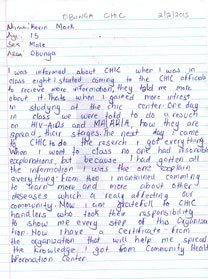 OBUNGA CHIC 2/2/2013
Name: Kevin Mark
Age: 15
Sex: Male
Area: Obunga
I was informed about CHIC when I was in
class eight. I started coming to the CHIC officials
to recieve more information, they told me more
about it. Thats when I gained more interest
in studying at the chic center. One day
in class we were told to do a reseach
on HIV-AIDs and MALARIA, how they are
spread, their stages. The next day I came
to CHIC to do the research I got everything.
When I went to class no one had
explanations, but because I had gotten all
the information I was the one explain
everything from then I mantained comming
to learn more and more about other
diseases which is realy affecting our
community. Now I am greatfull to CHIC
handlers who took their responsibility
to show me every step of this Organiza
tion. Now I have a certificate from
the organization that will help me spread
the knowledge I got from Community Health
Information Center.